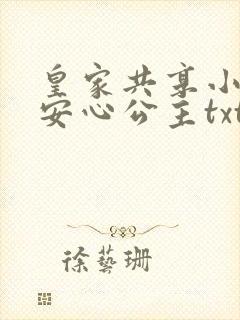 皇家共享小
安心公主txt
徐藝珊